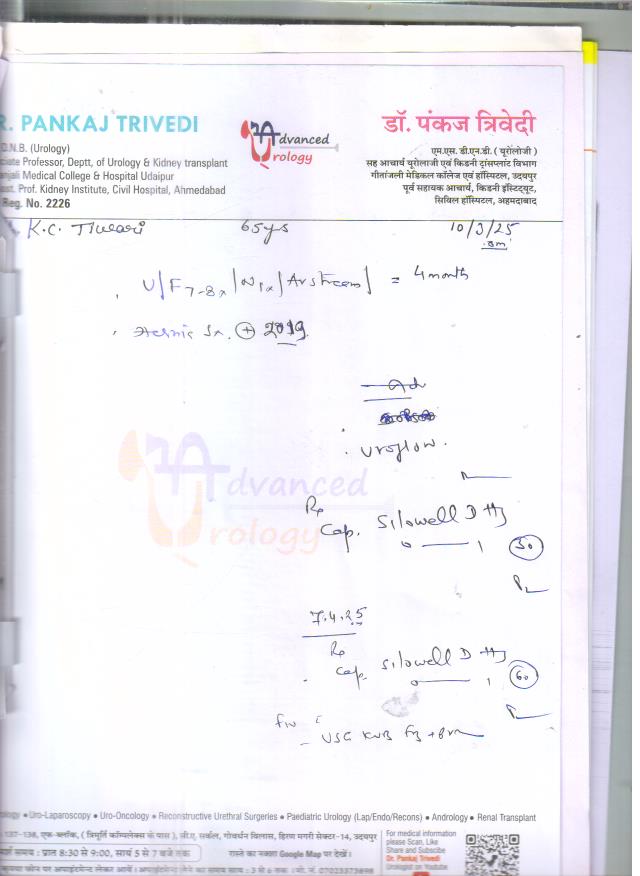 R. PANKAJ TRIVEDI
D.N.B. (Urology)
ciate Professor, Deptt. of Urology & Kidney transplant
anjali Medical College & Hospital Udaipur
asst. Prof. Kidney Institute, Civil Hospital, Ahmedabad
Reg. No. 2226
Advanced
Urology
डॉ. पंकज त्रिवेदी
एम.एस. डी.एन.बी. ( यूरोलॉजी )
सह आचार्य यूरोलाजी एवं किडनी ट्रांसप्लांट विभाग
गीतांजली मेडिकल कॉलेज एवं हॉस्पिटल, उदयपुर
पूर्व सहायक आचार्य, किडनी इंस्टिट्यूट,
सिविल हॉस्पिटल, अहमदाबाद
K.C. Tiwari 65 ys 10/3/25
U/F 7-8x/N 1x/ stream/ = 4 month
+ 2019
Adv
Uroflow.
Advanced
Urology
Rx
Cap. Silowell D
0 — 1 30
7.4.25
Rx
Cap. Silowell D
0 — 1 60
USG KUB
ology • Uro-Laparoscopy • Uro-Oncology • Reconstructive Urethral Surgeries • Paediatric Urology (Lap/Endo/Recons) • Andrology • Renal Transplant
137-138, एफ-ब्लॉक, ( त्रिमूर्ति कॉम्पलेक्स के पास ), सी.ए. सर्कल, गोवर्धन विलास, हिरण मगरी सेक्टर-14, उदयपुर
समय : प्रातः 8:30 से 9:00, सायं 5 से 7 बजे तक रास्ते का नक्शा Google Map पर देखें।
For medical information
please Scan, Like
Share and Subscibe
Dr. Pankaj Trivedi
Urologist on Youtube